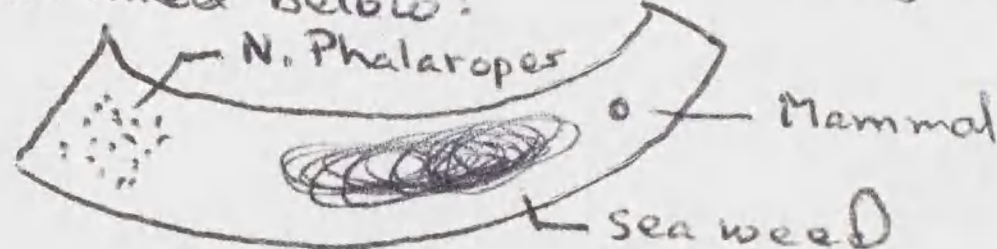 below:
N. Phalaropes
Mammal
sea weed